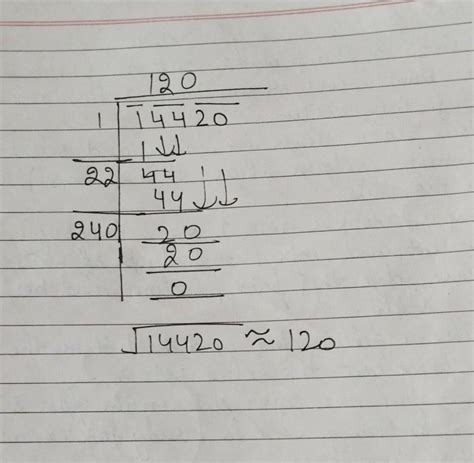 120
1 14420
1
22 44
44
240 20
20
0
√14420 ≈ 120